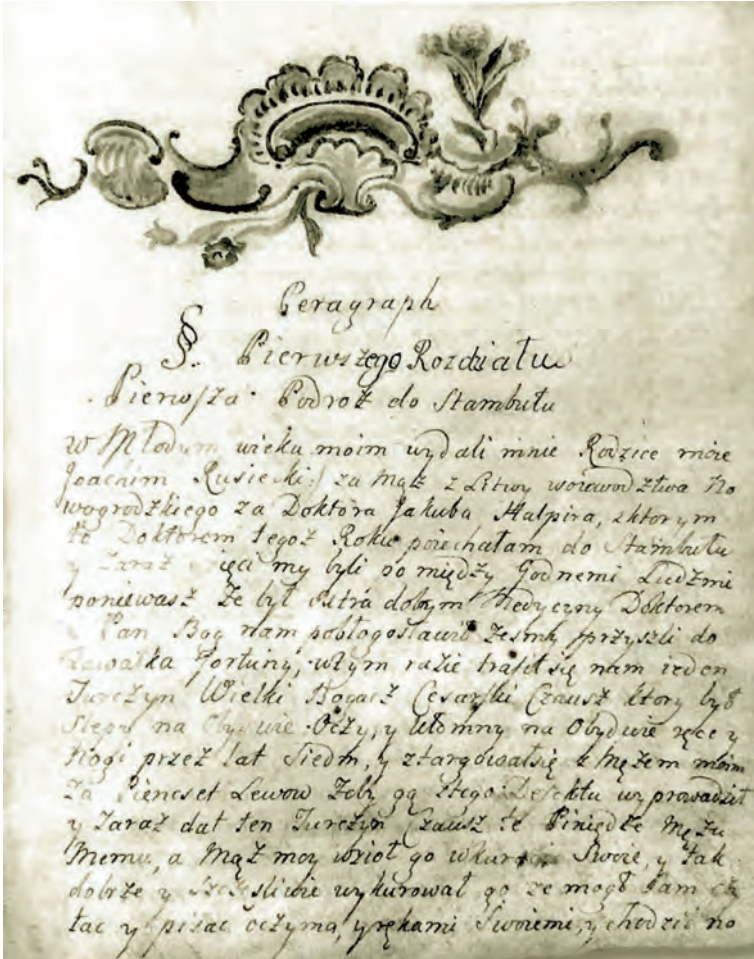 Peragraph
§. Pierwszego Rozdziału
Pierwsza Podroż do Stambułu
w Młodym wieku moim wydali mnie Rodzice moie
Joachim Rusiecki:/ za Mąż z Litwy woiewodztwa No
wogrodzkiego za Doktora Jakuba Halpira, zktorym
to Doktorem tegoż Roku poiechałam do Stambułu
y Zaraz my byli po między Godnemi Ludzmi
poniewasz że był extra dobrym Medycyny Doktorem
Pan Bog nam pobłogosławił żesmy przyszli do
kawałka Fortuny, wtym razie trafił się nam ieden
Turczyn Wielki Bogacz Cesarski Czausz ktory był
Slepy na Obydwie Oczy, y Ułomny na Obydwie ręce y
Nogi przez lat Siedm, y ztargował się z Mężem moim
Za Piencset Lewow żeby go ztego Defektu wyprowadził
y Zaraz dał ten Turczyn Czausz te Piniędze Mężu
Memu, a Mąż moy wzioł go wkuracią Swoie, y tak
dobrze y Szczęsliwie wykurował go ze mogł sam czy
tac y pisac oczyma, y rękami Swoiemi, y chodzić no